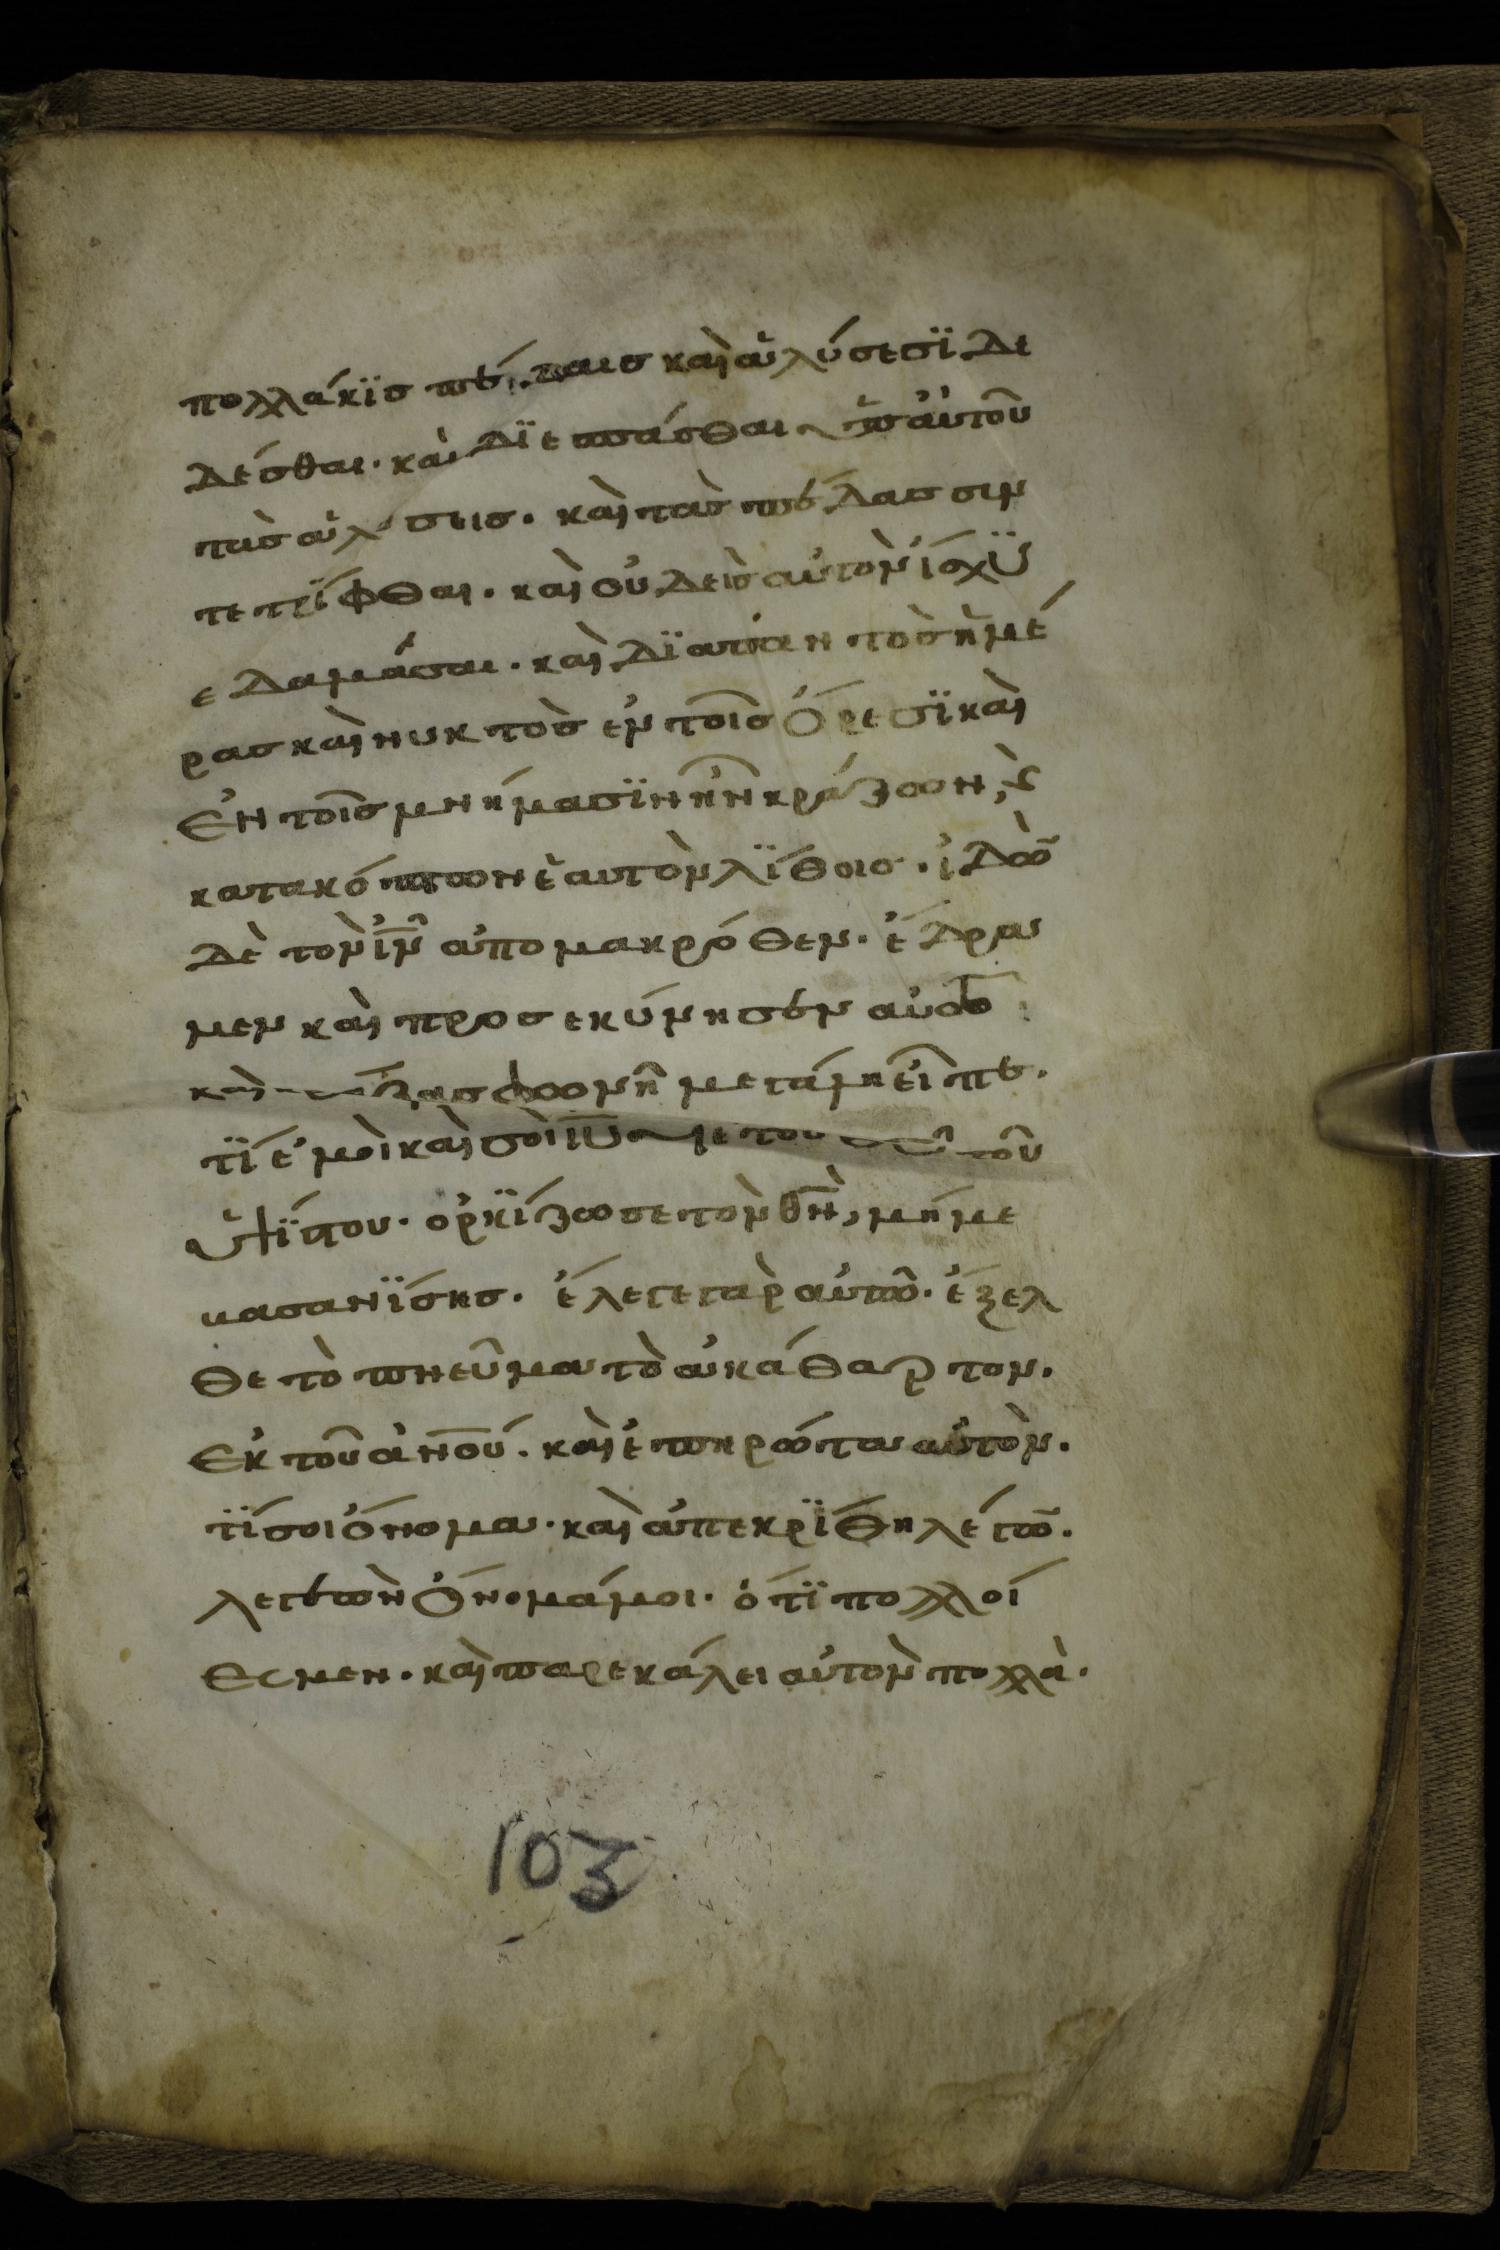 πολλάκϊσ πέδαισ καὶ ἁλύσεσϊ δε
δέσθαι· καὶ δϊεσπάσθαι ὑπ αὐτοῦ
τὰσ ἁλύσεισ. καὶ τὰσ πέδασ συν
τετρΐφθαι. καὶ οὐδεὶσ αὐτὸν ἴσχϋ
ε δαμάσαι. καὶ δϊαπαντὸσ ἡμέ
ρασ καὶ νυκτὸσ ἐν τοῖσ ὄρεσϊ καὶ
ἐν τοῖσ μνήμασϊν ἦν κράζων, ϗ̀
κατακόπτων ἑαυτὸν λΐθοισ. ἰδὼ̃
δὲ τὸν ἰ̅ν̅ ἀπο μακρόθεν. ἔδρα
μεν καὶ προσεκύνησέν αὐτὸ
καὶ κράξασ φωνῆ μεγάλη εἶπέ.
τΐ ἐμοὶ καὶ σοὶ ι̅υ̅ υἱὲ τοῦ θ̅υ̅ τοῦ
ὑψΐστου. ὁρκΐζω σε τὸν θ̅ν̅, μή με
βασανΐσησ. ἔλεγε γὰρ αὐτῶ. ἔξελ
θε τὸ πνεῦμα τὸ ἀκάθαρτον.
ἐκ τοῦ ἀν̅ο̅ύ. καὶ ἐπηρώτα αὐτὸν.
τΐ σοι ὄνομα. καὶ ἀπεκρΐθη λέγω̃.
λεγέων ὄνομά μοι. ὅτϊ πολλοί
ἐσμεν. καὶ παρεκάλει αὐτὸν πολλὰ.
103